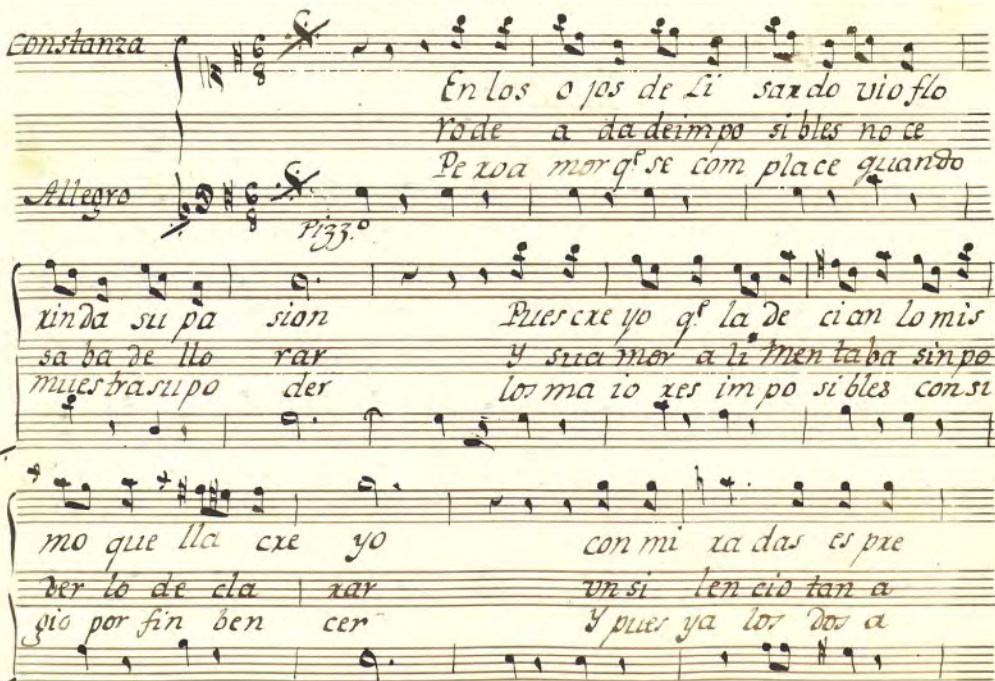 Constanza
En los o jos de Li sardo vio flo
rode a da deimpo si bles no ce
Pe roa mor q.e se com place quando
Allegro
Pizz.o
rinda su pa sion Pues cre yo q.e la de cian lo mis
sa ba de llo rar Y sua mor a li men taba sin po
muestrasupo der los ma io res im po si bles consi
mo que lla cre yo con mi ra das es pre
der lo de cla rar vn si len cio tan a
gio por fin ben cer Y pues ya los dos a